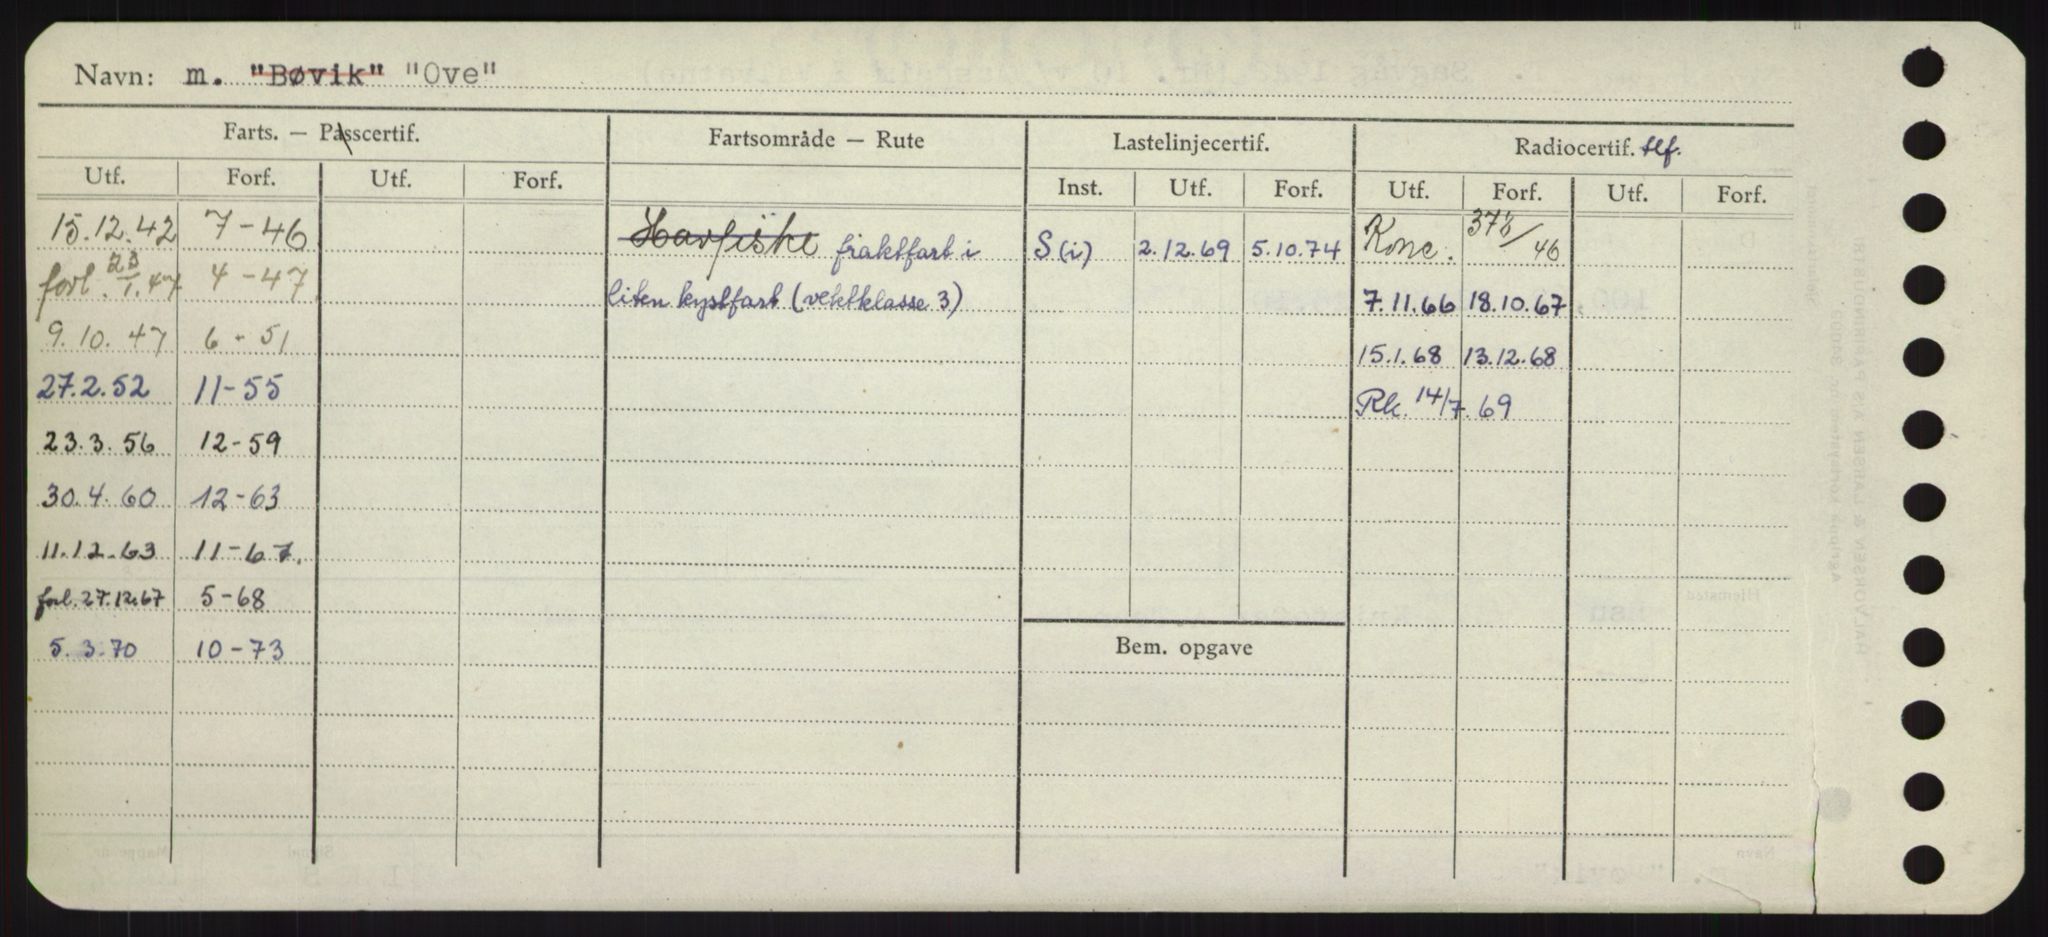 Navn: m. "Bøvik" "Ove"
Farts. — Passcertif. Fartsområde — Rute Lastelinjecertif. Radiocertif. tlf.
Utf. Forf. Utf. Forf. Inst. Utf. Forf. Utf. Forf. Utf. Forf.
15.12.42 7-46 Havfiske fraktfart i S (i) 2.12.69 5.10.74 Konc. /46
forl. 23/1.47 4-47 liten kystfart (vektklasse 3) 7.11.66 18.10.67
9.10.47 6-51 15.1.68 13.12.68
27.2.52 11-55 Rk. 14/7.69
23.3.56 12-59
30.4.60 12-63
11.12.63 11-67.
forl. 27.12.67 5-68
5.3.70 10-73 Bem. opgave